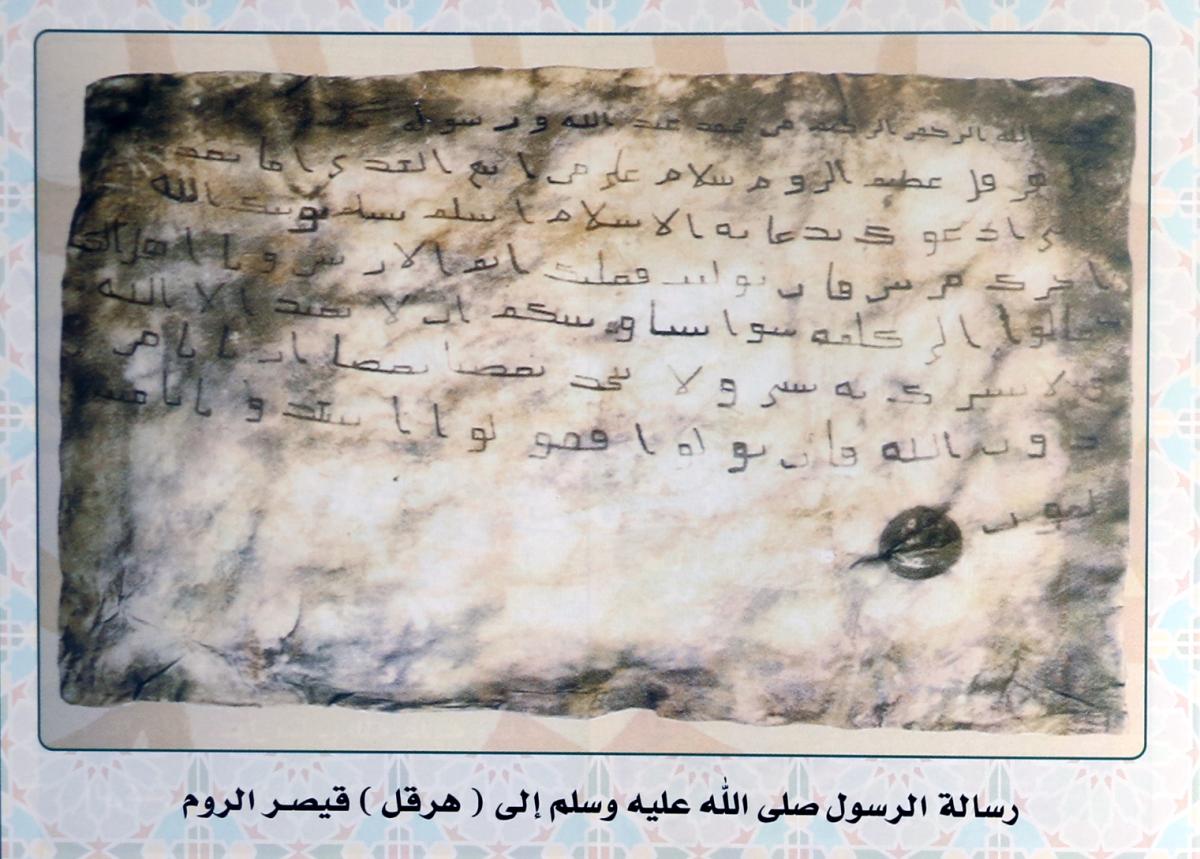 الله الرحمن الرحيم من محمد عبد الله ورسوله
هرقل عظيم الروم سلام على من اتبع الهدى اما بعد
ادعوك بدعاية الاسلام اسلم تسلم يوتك الله
اجرك مرتين فان توليت فعليك اثم الاريسين ويا اهل الكتاب
تعالوا الى كلمة سوا بيننا وبينكم ان لا نعبد الا الله
ولا نشرك به ولا يتخذ بعضنا بعضا اربابا من
دون الله فان تولوا فقولوا اشهدوا بانا مس
لمون
رسالة الرسول صلى الله عليه وسلم إلى ( هرقل ) قيصر الروم